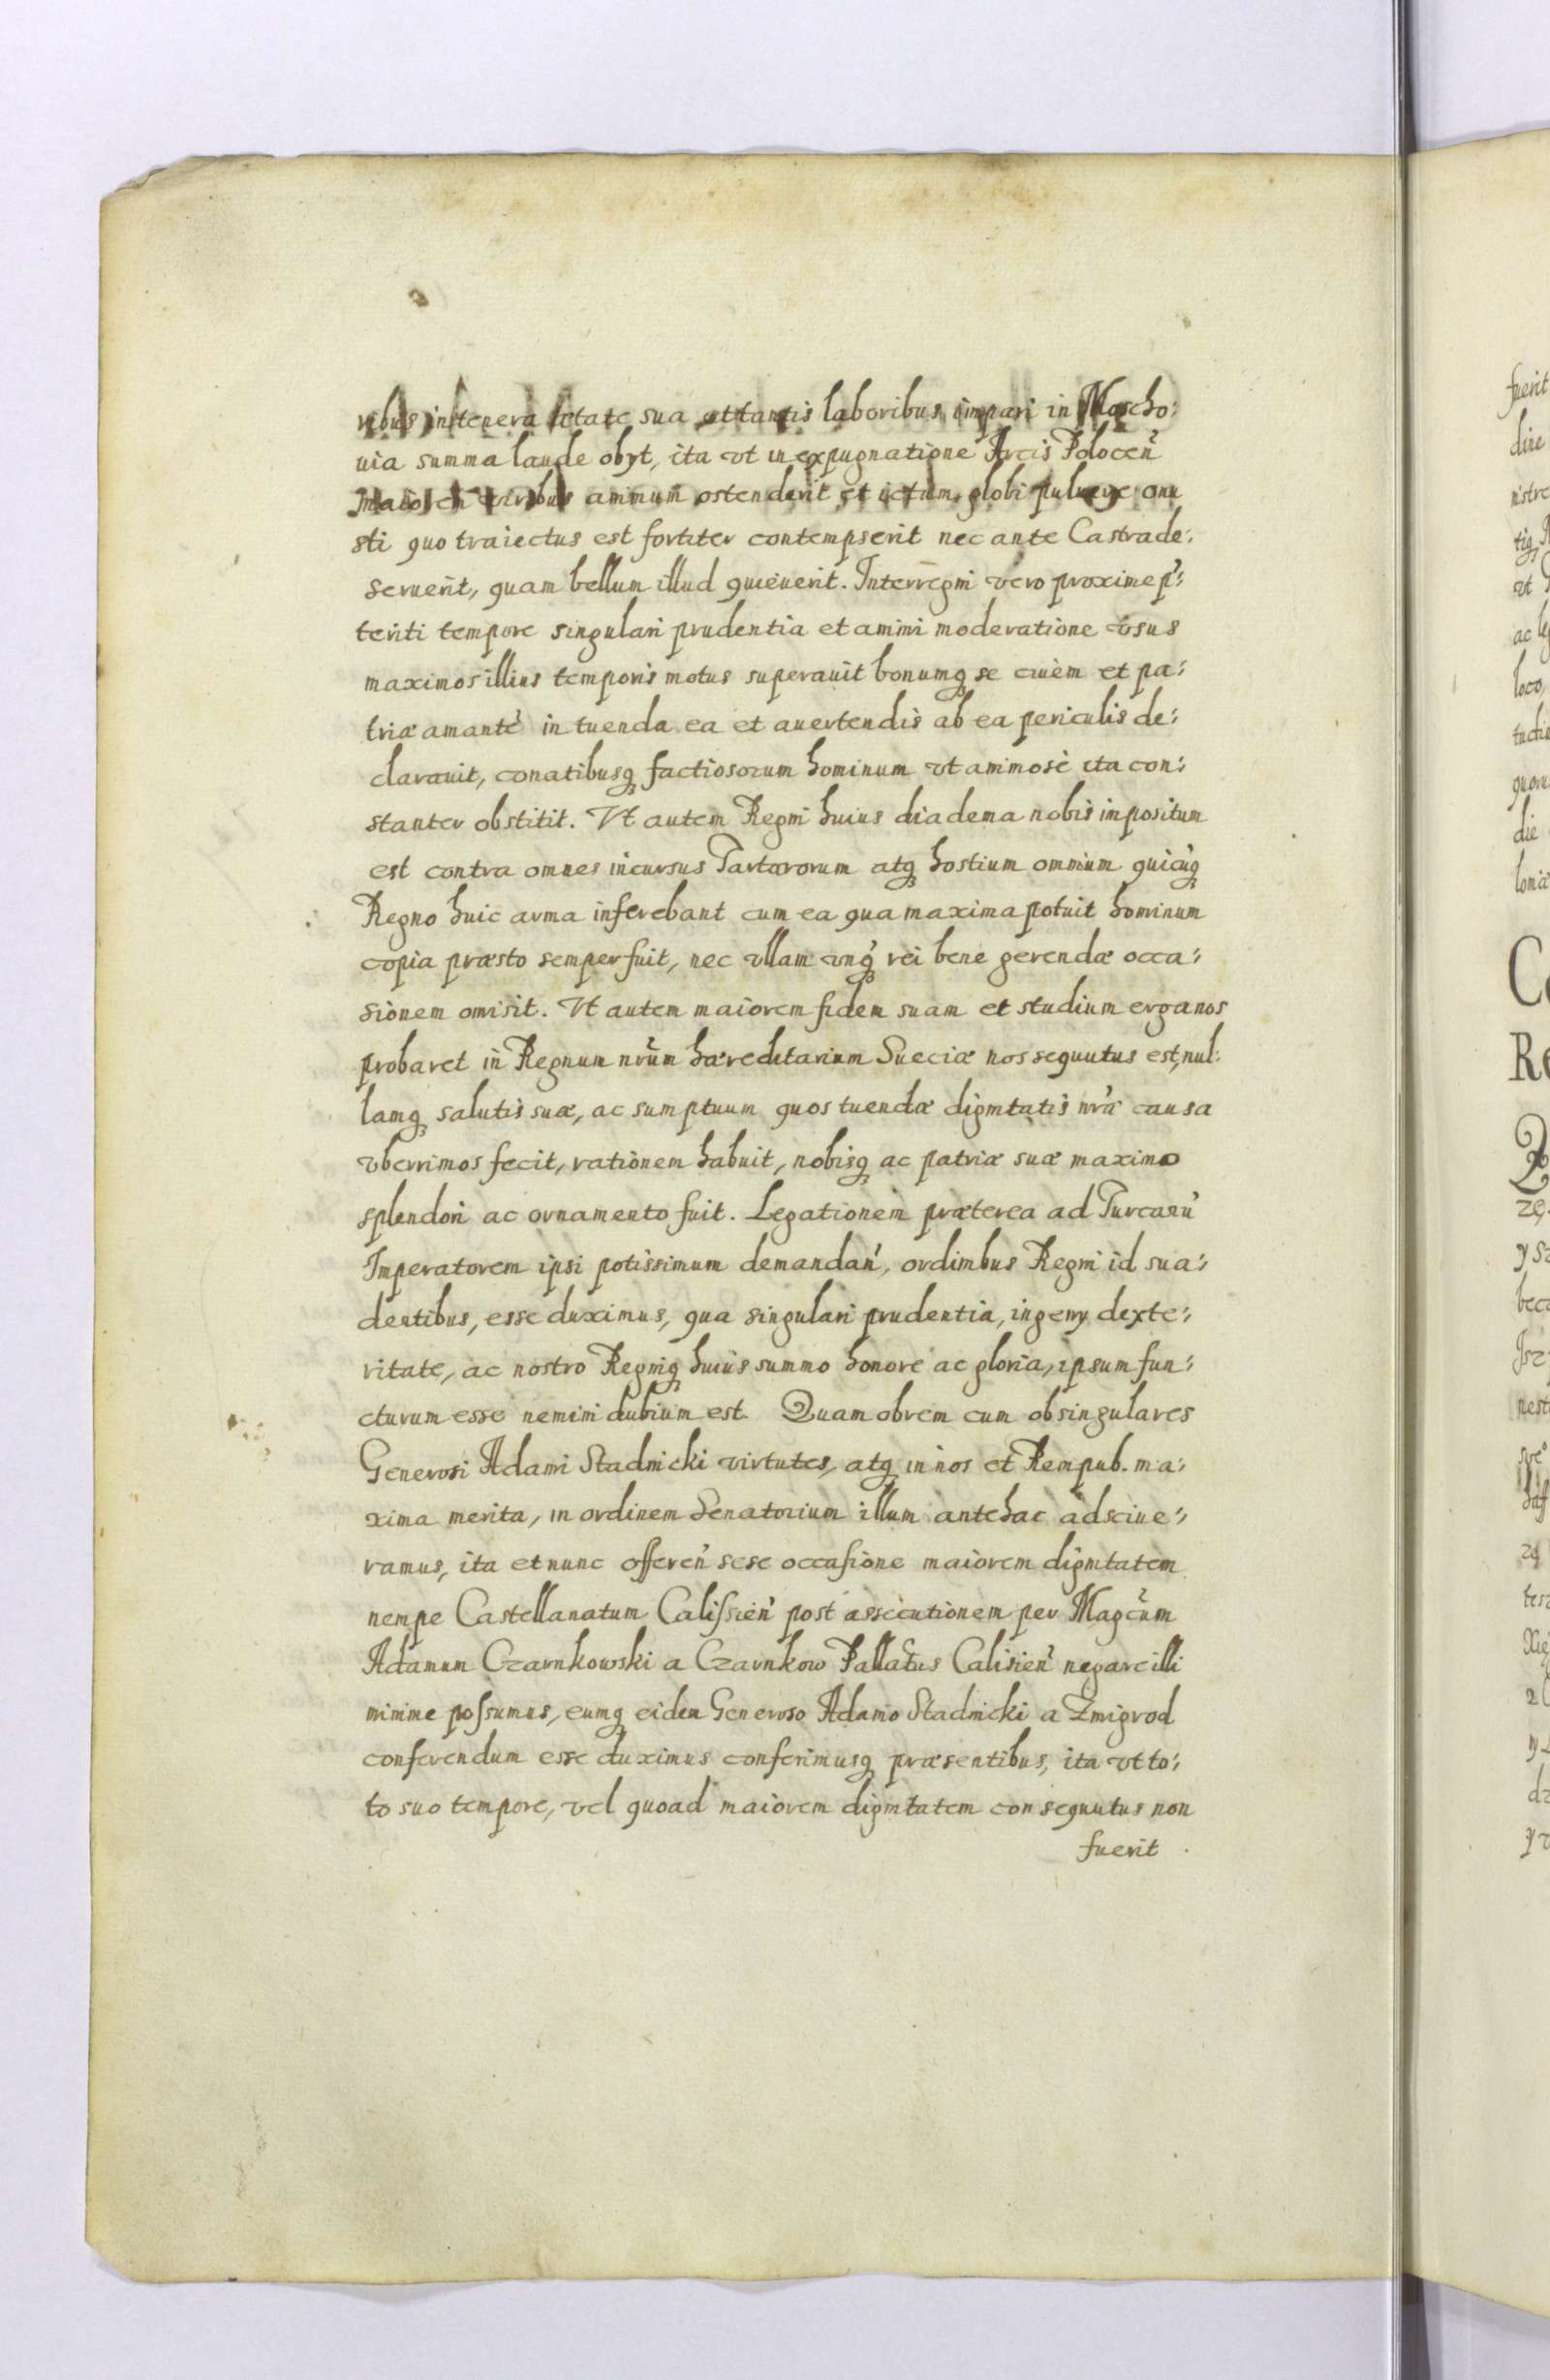 ribus in tenera ætate sua et tantis laboribus impari in Moscho:
uia summa laude obyt, ita vt in expugnatione Arcis Polocen̄
maiorem viribus animum ostenderit et ictum globi puluere onu
sti quo traiectus est fortiter contempserit nec ante Castra de:
seruerit, quam bellum illud quieuerit. Interregni vero proxime p̄:
teriti tempore singulari prudentia et animi moderatione vsus
maximos illius temporis motus superauit bonumq́ se ciuem et pa:
triæ amante' in tuenda ea et auertendis ab ea periculis de:
clarauit, conatibusq́ factiosorum hominum vt animosè ita con:
stanter obstitit. Vt autem Regni huius diadema nobis impositum
est contra omnes incursus Tartarorum atq́ hostium omnium quicu'q́
Regno huic arma inferebant cum ea qua maxima potuit hominum
copia præsto semper fuit, nec vllam vnq́ rei bene gerendæ occa:
sionem omisit. Vt autem maiorem fidem suam et studium erga nos
probaret in Regnum nr̄um hæreditarium Sueciæ nos sequutus est, nul:
lamq́ salutis suæ, ac sumptuum quos tuendæ dignitatis nr̄a causa
vberrimos fecit, rationem habuit, nobisq́ ac patriæ suæ maximo
splendori ac ornamento fuit. Legationem præterea ad Turcaru'
Imperatorem ipsi potissimum demandan', ordinibus Regni id sua:
dentibus, esse duximus, qua singulari prudentia, ingeny dexte:
ritate, ac nostro Regniq́ huius summo honore ac gloria, ipsum fun:
cturum esse nemini dubium est. Quam obrem cum ob singulares
Generosi Adami Stadnicki virtutes, atq́ in nos et Rempub. ma:
xima merita, in ordinem Senatorium illum antehac adsciue:
ramus, ita et nunc offeren' sese occasione maiorem dignitatem
nempe Castellanatum Calissien' post assecutionem per Magc̄um
Adamum Czarnkowski a Czarnkow Pallat̄us Calisien' negare illi
minime possumus, eumq́ eidem Generoso Adamo Stadnicki a Zmigrod
conferendum esse duximus conferimusq́ præsentibus, ita vt to:
to suo tempore, vel quoad maiorem dignitatem consequutus non
fuerit